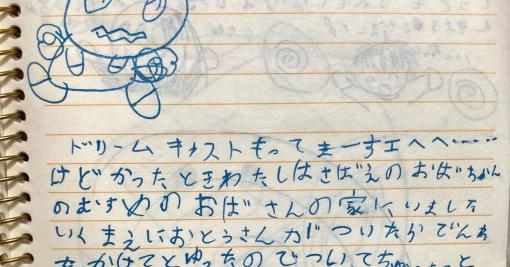 ドリームキャストもってまーすエへへ……
けどかったときわたしはさばえのおばちゃん
のむすめのおばさんの家にいました
いくまえにおとうさんがついたらでんわ
をかけてとゆったのでついてち